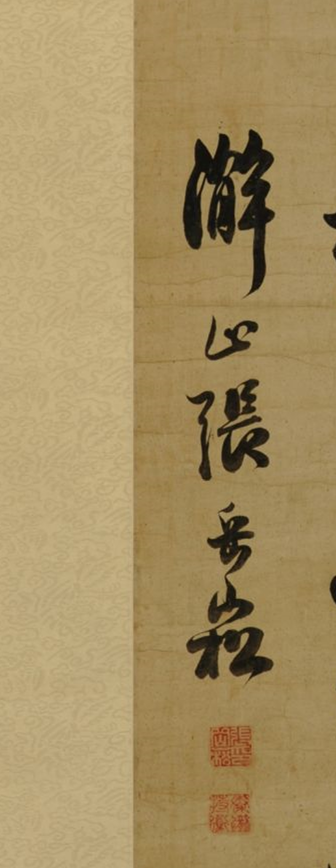 澥山張岳崧